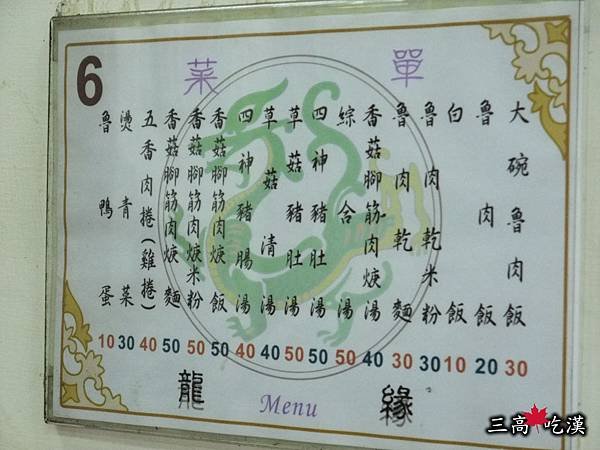 6
菜單
大碗魯肉飯
魯肉飯
白飯
魯肉乾米粉
魯肉乾麵
香菇腳筋肉焿湯
綜合湯
四神豬肚湯
草菇豬肚湯
草菇清湯
四神豬腸湯
香菇腳筋肉焿飯
香菇腳筋肉焿米粉
香菇腳筋肉焿麵
五香肉捲(雞捲)
燙青菜
魯鴨蛋
10 30 40 50 50 50 40 40 50 50 50 40 30 30 10 20 30
龍 Menu 緣
三高吃漢